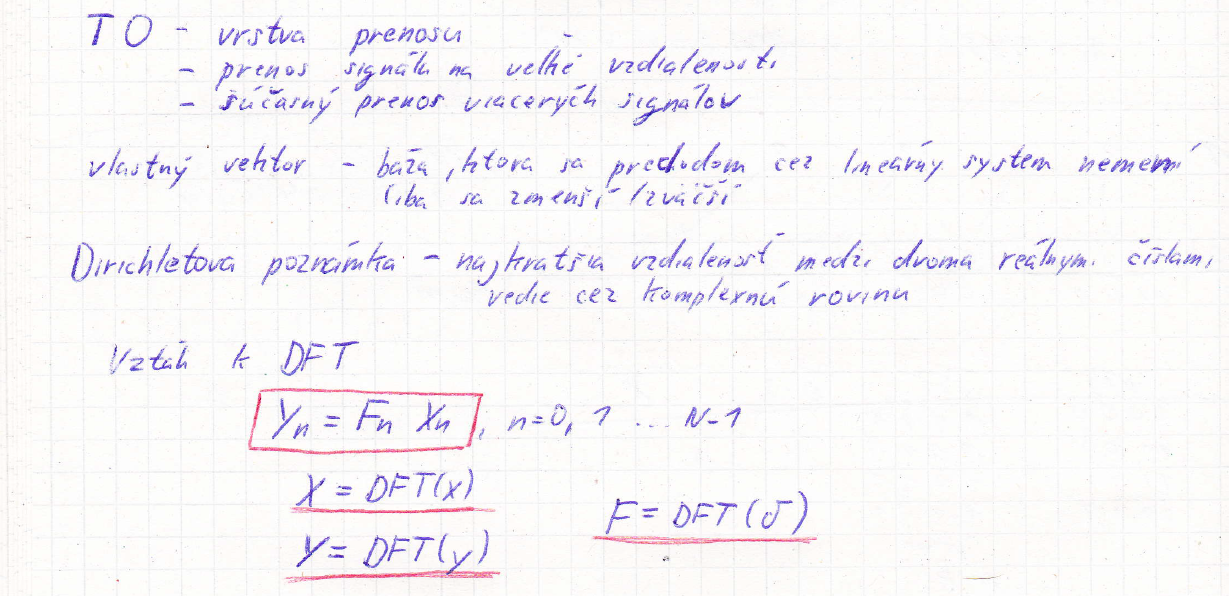 TO - vrstva prenosu
- prenos signálu na veľké vzdialenosti
- súčasný prenos viacerých signálov
vlastný vektor - báza, ktora sa prechodom cez lineárny system nemení
iba sa zmenší / zväčší
Dirichletova poznámka - najkratšia vzdialenosť medzi dvoma reálnymi číslami
vedie cez komplexnú rovinu
Vzťah k DFT
Yn = Fn Xn, n=0, 1 ... N-1
X = DFT(x)
F = DFT(δ)
Y = DFT(y)